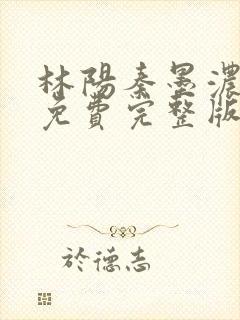 林陽秦墨濃
免費完整版
於德志